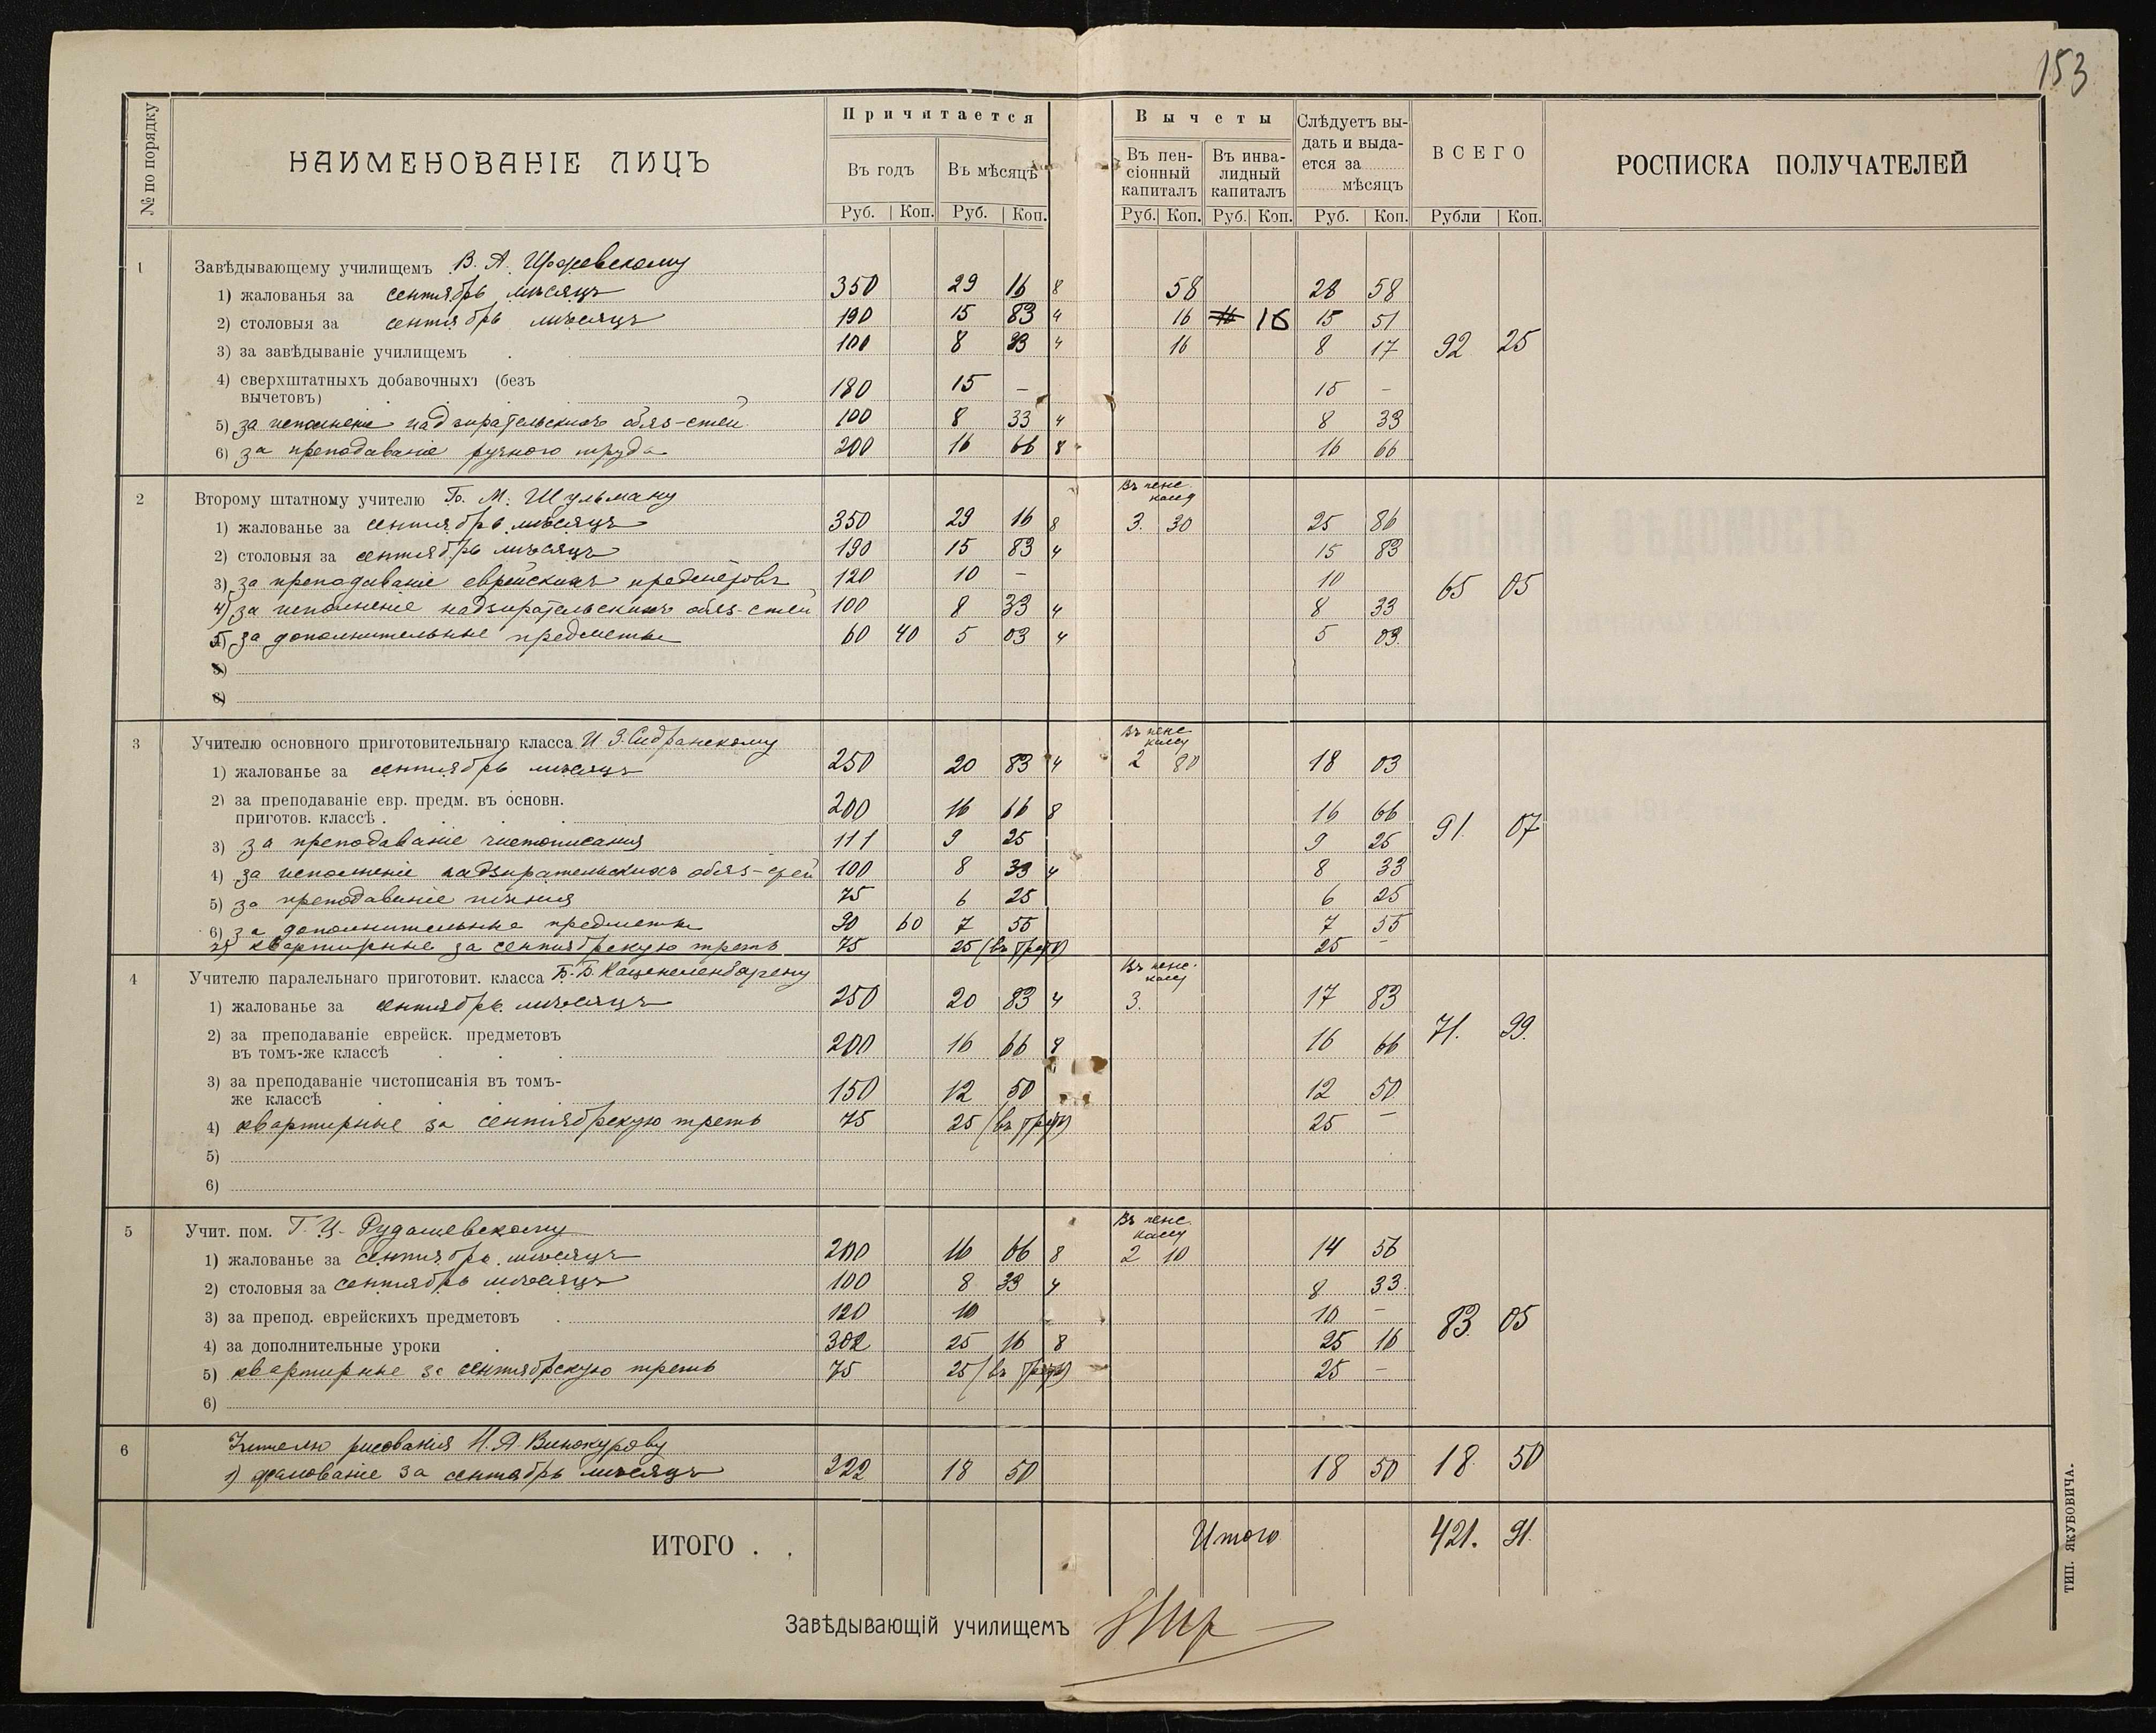 153
№ по порядку
НАИМЕНОВАНІЕ ЛИЦЪ
Причитается
Въ годъ
Въ мѣсяцъ
Руб. Коп. Руб. Коп.
Вычеты
Въ пен-
сіонный
капиталъ
Въ инва-
лидный
капиталъ
Слѣдуетъ вы-
дать и выда-
ется за
мѣсяцъ
ВСЕГО
РОСПИСКА ПОЛУЧАТЕЛЕЙ
Руб. Коп. Руб. Коп. Руб. Коп. Рубли Коп.
1 Завѣдывающему училищемъ В. А.
1) жалованья за сентябрь мѣсяцъ 350 29 16 8 58 28 58
2) столовыя за сентябрь мѣсяцъ 190 15 83 4 16 16 15 51
3) за завѣдываніе училищемъ 100 8 33 4 16 8 17 92 25
4) сверхштатныхъ добавочныхъ (безъ
вычетовъ) 180 15 — 15 —
5) за исполненіе надзирательскихъ обяз-стей 100 8 33 4 8 33
6) за преподаваніе ручного труда 200 16 66 8 16 66
2 Второму штатному учителю М. Шульману Въ пенс.
кассу
1) жалованье за сентябрь мѣсяцъ 350 29 16 8 3. 30 25 86
2) столовыя за сентябрь мѣсяцъ 190 15 83 4 15 83
3) за преподаваніе еврейскихъ предметовъ 120 10 — 10 65 05
4) за исполненіе надзирательскихъ обяз-стей 100 8 33 4 8 33
5) за дополнительные предметы 60 40 5 03 4 5 03.
3 Учителю основного приготовительнаго класса И. З. Сидранскому Въ пенс
кассу
1) жалованье за сентябрь мѣсяцъ 250 20 83 4 2 80 18 03
2) за преподаваніе евр. предм. въ основн.
приготов. классѣ 200 16 66 8 16 66
3) за преподаваніе чистописанія 111 9 25 9 25 91. 07
4) за исполненіе надзирательскихъ обяз-стей 100 8 33 4 8 33
5) за преподаваніе пѣнія 75 6 25 6 25
6) за дополнительные предметы 90 60 7 55 7 55
7) квартирные за сентябрьскую треть 75 25 (въ треть) 25 —
4 Учителю паралельнаго приготовит. класса Б. Б. Каценеленбогену Въ пенс.
кассу
1) жалованье за сентябрь мѣсяцъ 250 20 83 4 3. 17 83
2) за преподаваніе еврейск. предметовъ
въ томъ-же классѣ 200 16 66 8 16 66 71. 99.
3) за преподаваніе чистописанія въ томъ-
же классѣ 150 12 50 12 50
4) квартирные за сентябрьскую треть 75 25 (въ треть) 25 —
5)
6)
5 Учит. пом. Г. Рудашевскому Въ пенс.
кассу
1) жалованье за сентябрь мѣсяцъ 200 16 66 8 2 10 14 56
2) столовыя за сентябрь мѣсяцъ 100 8 33 4 8 33.
3) за препод. еврейскихъ предметовъ 120 10 10 — 83. 05
4) за дополнительные уроки 302 25 16 8 25 16
5) квартирные за сентябрьскую треть 75 25 (въ треть) 25 —
6)
6 Учителю рисованія Н. Я. Винокурову
1) жалованіе за сентябрь мѣсяцъ 222 18 50 18 50 18. 50
ИТОГО . . Итого 421. 91.
Завѣдывающій училищемъ
ТИП. ЯКУБОВИЧА.